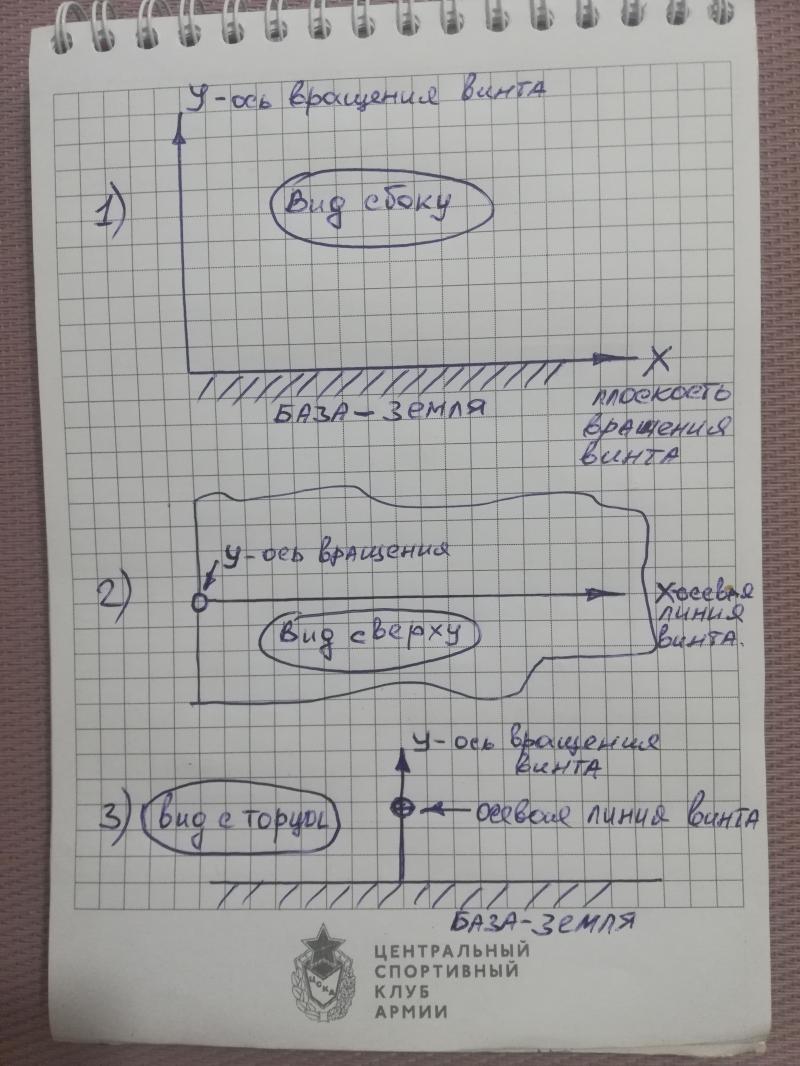 У-ось вращения винта
1)
Вид сбоку
Х
БАЗА-ЗЕМЛЯ
плоскость
вращения
винта
У-ось вращения
2)
Х осевая
линия
винта.
Вид сверху
У-ось вращения
винта
3) Вид с торцы
осевая линия винта
БАЗА-ЗЕМЛЯ
ЦСКА
ЦЕНТРАЛЬНЫЙ
СПОРТИВНЫЙ
КЛУБ
АРМИИ